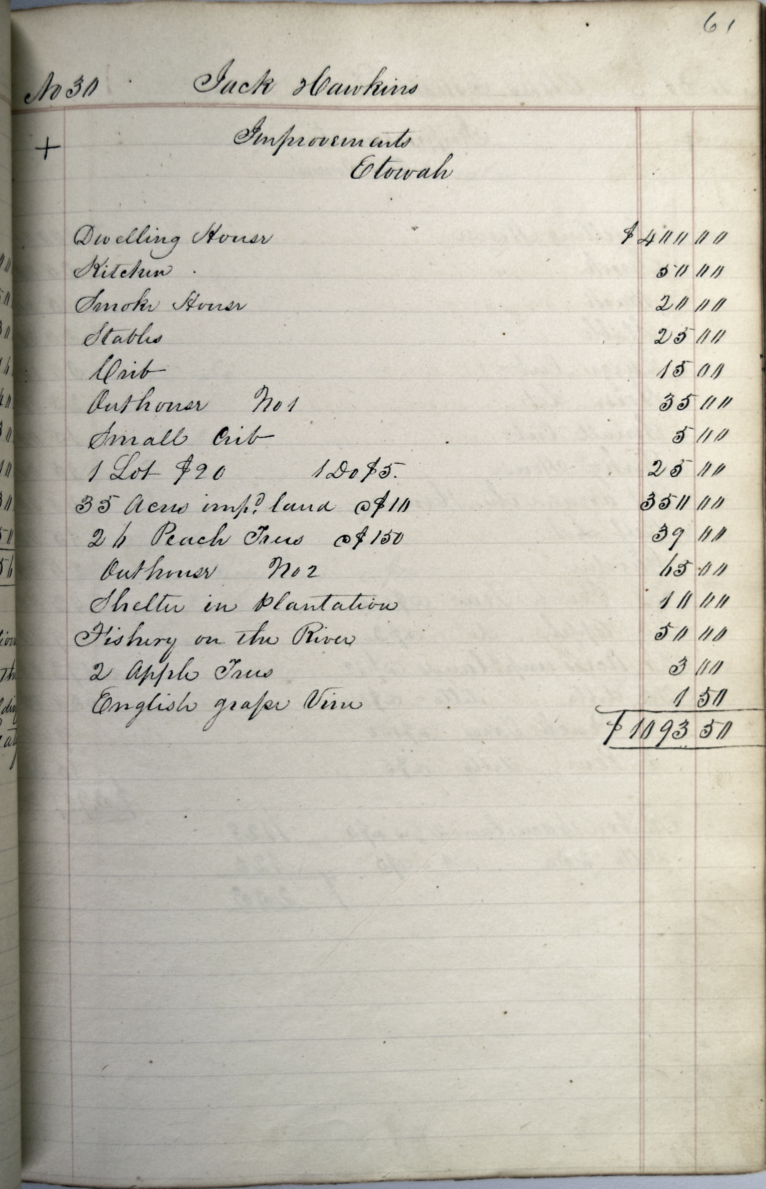 61
No 30 Jack Hawkins
+ Improvements
Etowah
Dwelling House $400 00
Kitchen 50 00
Smoke House 20 00
Stables 25 00
Crib 15 00
Outhouse No 1 35 00
Small Crib 5 00
1 Lot $20 1 Do $5. 25 00
35 Acres impd land @ $10 350 00
26 Peach Trees @ $150 39 00
Outhouse No 2 65 00
Shelter in plantation 10 00
Fishery on the River 50 00
2 Apple Trees 3 00
English grape Vine 1 50
$1093 50